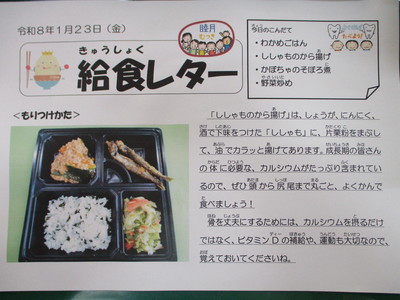 令和8年1月23日（金）
睦月
むつき
きゅうしょく
給食レター
今日のこんだて
・わかめごはん
・ししゃものから揚げ
・かぼちゃのそぼろ煮
・野菜炒め
＜もりつけかた＞
「ししゃものから揚げ」は、しょうが、にんにく、
酒で下味をつけた「ししゃも」に、片栗粉をまぶし
て、油でカラッと揚げてあります。成長期の皆さん
の体に必要な、カルシウムがたっぷり含まれてい
るので、ぜひ頭から尻尾まで丸ごと、よくかんで
食べましょう！
骨を丈夫にするためには、カルシウムを摂るだけ
ではなく、ビタミンDの補給や、運動も大切なので、
覚えておいてくださいね。